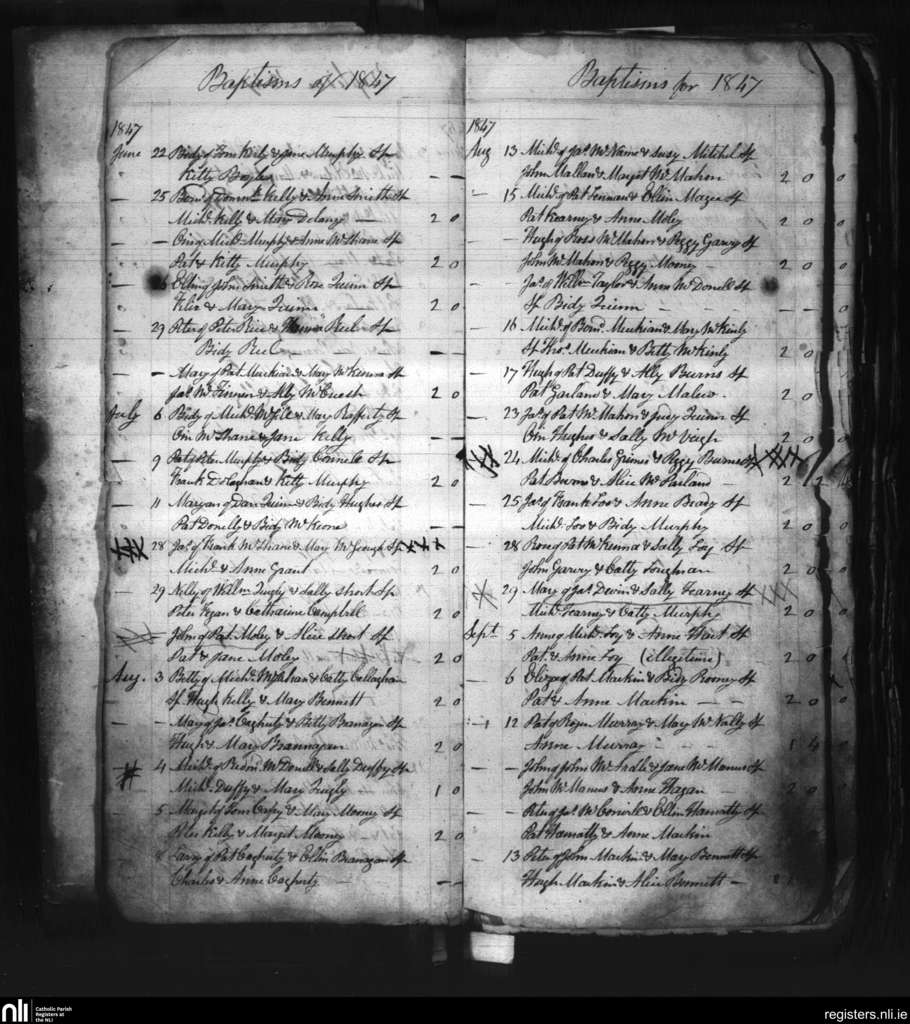 Baptisms of 1847
1847
June 22 Bidy of Tom Kiely & Jane Murphy Sp
Kitty
25 Bernd of Domnk Kelly & Anne Smith Sp
Michl Kelly & Mary Delany — 2 0
— Owin of Michl Murphy & Anne McShane Sp
Pat & Kitty Murphy 2 0
Ellin of John Smith & Rose Quinn Sp
Felix & Mary Quinn 2 0
29 Peter of Peter Rice & Reel Sp
Bidy Reel — —
— Mary of Pat Muckian & Mary McKenna Sp
Jas McFinnen & Ally McCreesh 2 0
July 6 Bidy of Michl & Mary Rafferty Sp
Owin McShane & Jane Kelly — —
— 9 Pat of Peter Murphy & Bidy Sp
Frank & Kitty Murphy 2 0
— 11 Maryan of Dan Quinn & Bidy Hughes Sp
Pat Donelly & Bidy McKeone — —
28 Jas of Frank McShane & Mary McGeough Sp xxx
Michl & Anne Grant 2 0
— 29 Nelly of Willm Quigly & Sally Short Sp
Peter Fegan & Catharine Campbell 2 0
John of Pat Moley & Alice Short Sp
Pat & Jane Moley 2 0
Aug. 3 Betty of Michl & Catty Callaghan
Sp Hugh Kelly & Mary Bennett 2 0
— — Mary of Jas & Betty Branagan Sp
Hugh & Mary Brannagan 2 0
4 Michl of McDonell & Sally Duffy Sp
Michl Duffy & Mary Quigly 1 0
5 Margt of Tom & Mary Mooney Sp
Peter Kelly & Margt Mooney 2 0
8 of Pat & Ellin Branagan Sp
Charles & Anne — — —
Baptisms for 1847
1847
Aug 13 Michl of Jas McNamee & Susy Mitchel Sp
John Mallan & Margt McMahon 2 0 0
— 15 Michl of Pat Lennan & Ellin Magee Sp
Pat Kearney & Anne Moley 2 0 0
— Hugh of Ross McMahon & Peggy Garvy Sp
John McMahon & Peggy Mooney 2 0 0
— Jas of Willm Taylor & Anne McDonell Sp
Sp Bidy Quinn — — 2 0 0
— 16 Michl of Bernd Muckian & Mary McKinly
Sp Thos Muckian & Betty McKinly 2 0 0
— 17 Hugh of Pat Duffy & Ally Burns Sp
Pat Garland & Mary 2 0
— 23 Jas of Pat McMahon & Judy Quinn Sp
Owin Hughes & Sally McVeigh 2 0 0
24 Michl of Charles Grimes & Peggy Burns Sp
Pat Burns & Alice McParland — 2 2
— 25 Jas of Frank Foy & Anne Brady Sp
Michl Foy & Bidy Murphy 2 0 0
— 28 Rose of Pat McKenna & Sally Foy Sp
John Garvy & Catty 2 0 0
29 Mary of Jas Devin & Sally Fearny Sp
Michl Fearny & Catty Murphy 2 0
Sept. 5 Anne of Michl Foy & Anne Sp
Pat & Anne Foy (illegitime) 2 0
— 6 Eliza of Pat Mackin & Bidy Rooney Sp
Pat & Anne Mackin — — 2 0 0
12 Pat of Roger Murray & Mary McNally Sp
Anne Murray — — — 1 4 0
— John of John McArdle & Jane McManus Sp
John McManus & Anne Hagan — 2 0 0
— Peter of Jas & Ellin Hanratty Sp
Pat Hanratty & Anne Mackin
— 13 Peter of John Mackin & Mary Bennett Sp
Hugh Mackin & Alice Bennett —
nli Catholic Parish
Registers at
the NLI
registers.nli.ie